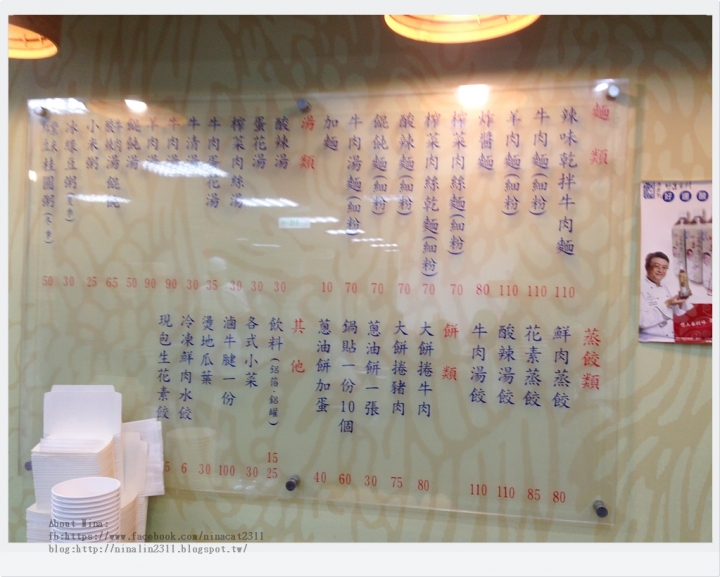 麵類
辣味乾拌牛肉麵 110
牛肉麵(細粉) 110
羊肉麵(細粉) 110
炸醬麵 80
榨菜肉絲麵(細粉) 70
榨菜肉絲乾麵(細粉) 70
酸辣麵(細粉) 70
餛飩麵(細粉) 70
牛肉湯麵(細粉) 70
加麵 10
湯類
酸辣湯 30
蛋花湯 30
榨菜肉絲湯 30
牛肉蛋花湯 35
牛清湯 30
牛肉湯 90
羊肉湯 90
餛飩湯 50
65
小米粥 25
冰綠豆粥(夏季) 30
桂圓粥(冬季) 50
蒸餃類
鮮肉蒸餃 80
花素蒸餃 85
酸辣湯餃 110
牛肉湯餃 110
餅類
大餅捲牛肉 80
大餅捲豬肉 75
蔥油餅一張 30
鍋貼一份10個 60
蔥油餅加蛋 40
其他
飲料(鋁箔·鋁罐) 15 25
各式小菜 30
滷牛腱一份 100
燙地瓜葉 30
冷凍鮮肉水餃 6
現包生花素餃
About Nina:
fb:https://www.facebook.com/ninacat2311
blog:http://ninalin2311.blogspot.tw/